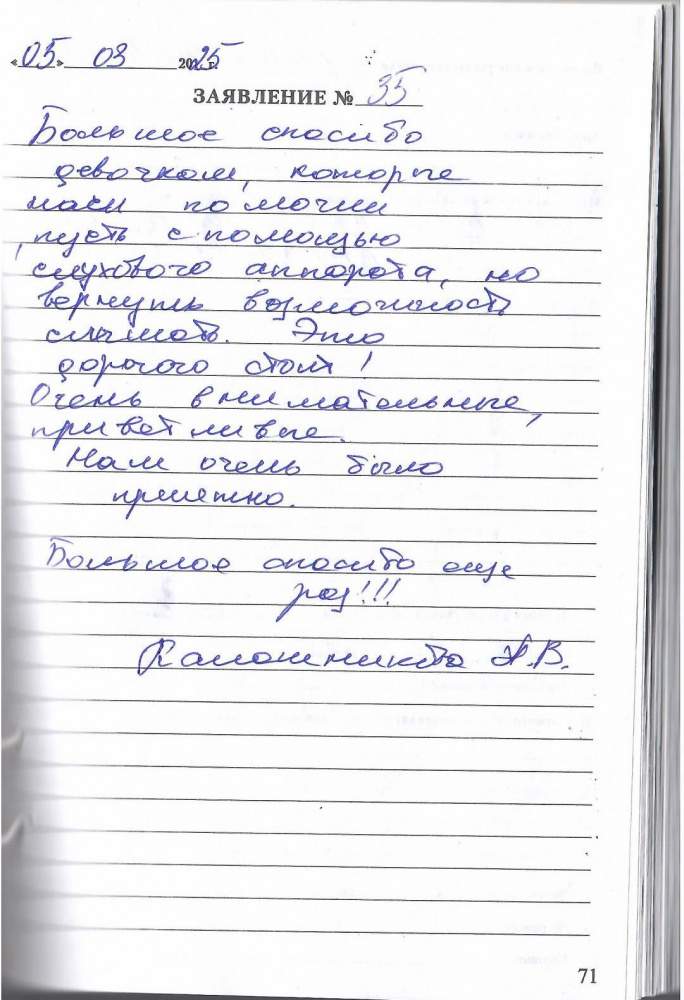 «05» 03 2025
ЗАЯВЛЕНИЕ № 35
Большое спасибо
девочкам, которые
нам помогли
пусть с помощью
слухового аппората, но
вернуть возможность
слышать. Это
дорогого стоит!
Очень внимательные,
приветливые.
Нам очень было
приятно.
Большое спасибо еще
раз!!!
Калошникова Н.В.
71